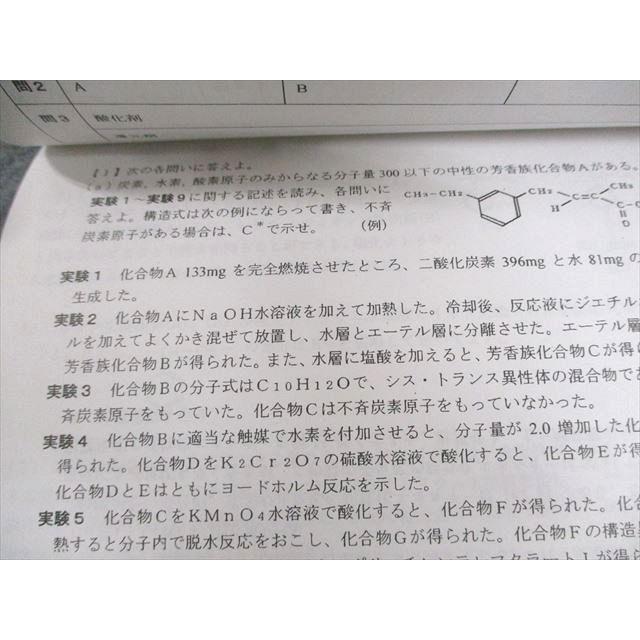 問2 A B
問3 酸化剤
次の各問いに答えよ。
(a) 炭素, 水素, 酸素原子のみからなる分子量300以下の中性の芳香族化合物Aがある。
実験1~実験9に関する記述を読み、各問いに
答えよ。構造式は次の例にならって書き、不斉
炭素原子がある場合は、C*で示せ。 (例)
CH₃-CH₂ CH₂ H C=C CH₃ C O
実験1 化合物A 133mgを完全燃焼させたところ、二酸化炭素 396mgと水 81mgの
生成した。
実験2 化合物AにNaOH水溶液を加えて加熱した。冷却後、反応液にジエチル
ルを加えてよくかき混ぜて放置し、水層とエーテル層に分離させた。エーテル層
芳香族化合物Bが得られた。また、水層に塩酸を加えると、芳香族化合物Cが得
実験3 化合物Bの分子式はC₁₀H₁₂Oで、シス・トランス異性体の混合物で
斉炭素原子をもっていた。化合物Cは不斉炭素原子をもっていなかった。
実験4 化合物Bに適当な触媒で水素を付加させると、分子量が 2.0 増加した化
得られた。化合物DをK₂Cr₂O₇の硫酸水溶液で酸化すると、化合物Eが得
化合物DとEはともにヨードホルム反応を示した。
実験5 化合物CをKMnO₄水溶液で酸化すると、化合物Fが得られた。化合
熱すると分子内で脱水反応をおこし、化合物Gが得られた。化合物Fの構造